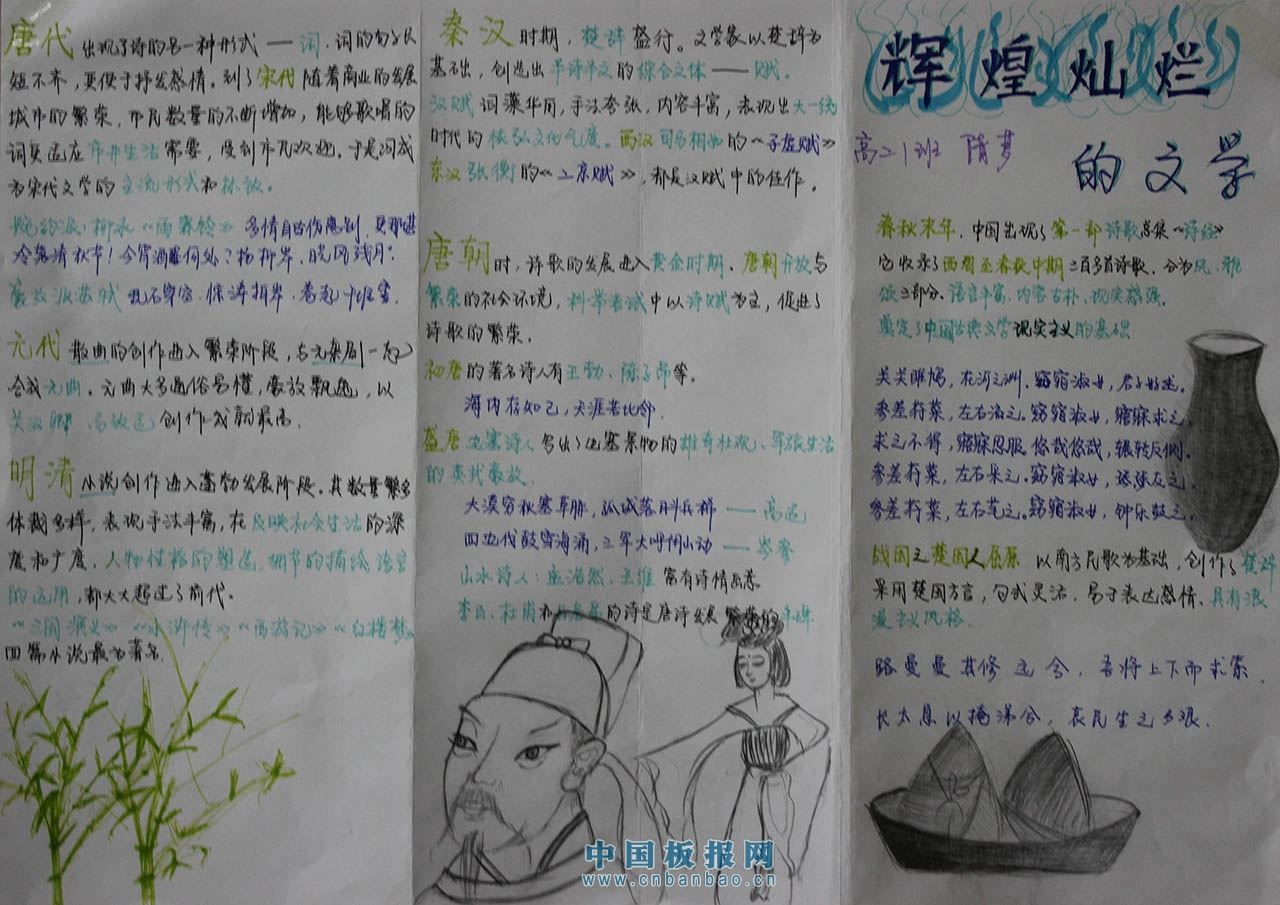 辉煌灿烂
的文学
高二1班 隋梦
春秋末年，中国出现了第一部诗歌总集《诗经》
它收录了西周至春秋中期三百多首诗歌，分为风、雅
颂三部分，语言丰富，内容古朴，现实感强，
奠定了中国古典文学现实主义的基础
关关雎鸠，在河之洲。窈窕淑女，君子好逑。
参差荇菜，左右流之。窈窕淑女，寤寐求之。
求之不得，寤寐思服。悠哉悠哉，辗转反侧。
参差荇菜，左右采之。窈窕淑女，琴瑟友之。
参差荇菜，左右芼之。窈窕淑女，钟乐鼓之。
战国之楚国人屈原 以南方民歌为基础，创作了楚辞
采用楚国方言，句式灵活，易于表达感情，具有浪
漫主义风格。
路曼曼其修远兮，吾将上下而求索，
长太息以掩涕兮，哀民生之多艰．
秦汉时期，楚辞盛行。文学家以楚辞为
基础，创造出半诗半文的综合文体——赋。
汉赋词藻华丽，手法夸张，内容丰富，表现出大一统
时代的恢弘文化气度。西汉司马相如的《子虚赋》
东汉张衡的《二京赋》，都是汉赋中的佳作。
唐朝时，诗歌的发展进入黄金时期。唐朝开放与
繁荣的社会环境，科举考试中以诗赋为主，促进了
诗歌的繁荣。
初唐的著名诗人有王勃、陈子昂等。
海内存知己，天涯若比邻．
盛唐边塞诗人写出了边塞景物的雄奇壮观、军旅生活
的英武豪放
大漠穷秋塞草腓，孤城落日斗兵稀——高适
四边伐鼓雪海涌，三军大呼阴山动——岑参
山水诗人：孟浩然、王维 富有诗情画意
李白、杜甫和白居易的诗是唐诗发展繁荣的丰碑
唐代出现了诗的另一种形式——词，词的句子长
短不齐，更便于抒发感情。到了宋代随着商业的发展
城市的繁荣，市民数量的不断增加，能够歌唱的
词更适应市井生活需要，受到市民欢迎。于是词成
为宋代文学的主流形式和标志。
婉约派：柳永《雨霖铃》多情自古伤离别，更那堪
冷落清秋节！今宵酒醒何处？杨柳岸，晓风残月。
豪放派苏轼 乱石穿空，惊涛拍岸，卷起千堆雪．
元代 散曲的创作进入繁荣阶段，与元杂剧一起
合成元曲。元曲大多通俗易懂，豪放飘逸，以
关汉卿、马致远创作成就最高．
明清小说创作进入蓬勃发展阶段。其数量繁多
体裁多样，表现手法丰富，在反映社会生活的深
度和广度，人物性格的塑造，细节的描绘，语言
的运用，都大大超过了前代。
《三国演义》《水浒传》《西游记》《红楼梦》
四篇小说最为著名．
中国板报网
www.cnbanbao.cn